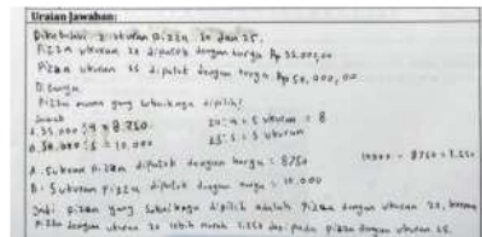 Uraian Jawaban:
Diketahui: 2 ukuran pizza 20 dan 25.
Pizza ukuran 20 dipatok dengan harga Rp 35.000,00
Pizza ukuran 25 dipatok dengan harga Rp 50.000,00
Ditanya
Pizza mana yang sebaiknya dipilih?
Jawab
A. 35.000 : 4 = 8.750 20 : 4 = 5 ukuran = 8
B. 50.000 : 5 = 10.000 25 : 5 = 5 ukuran
A. 5 ukuran Pizza dipatok dengan harga = 8750 10000 - 8750 = 1.250
B. 5 ukuran Pizza dipatok dengan harga = 10.000
Jadi pizza yang sebaiknya dipilih adalah Pizza dengan ukuran 20, karena
Pizza dengan ukuran 20 lebih murah 1.250 dari pada pizza dengan ukuran 25.